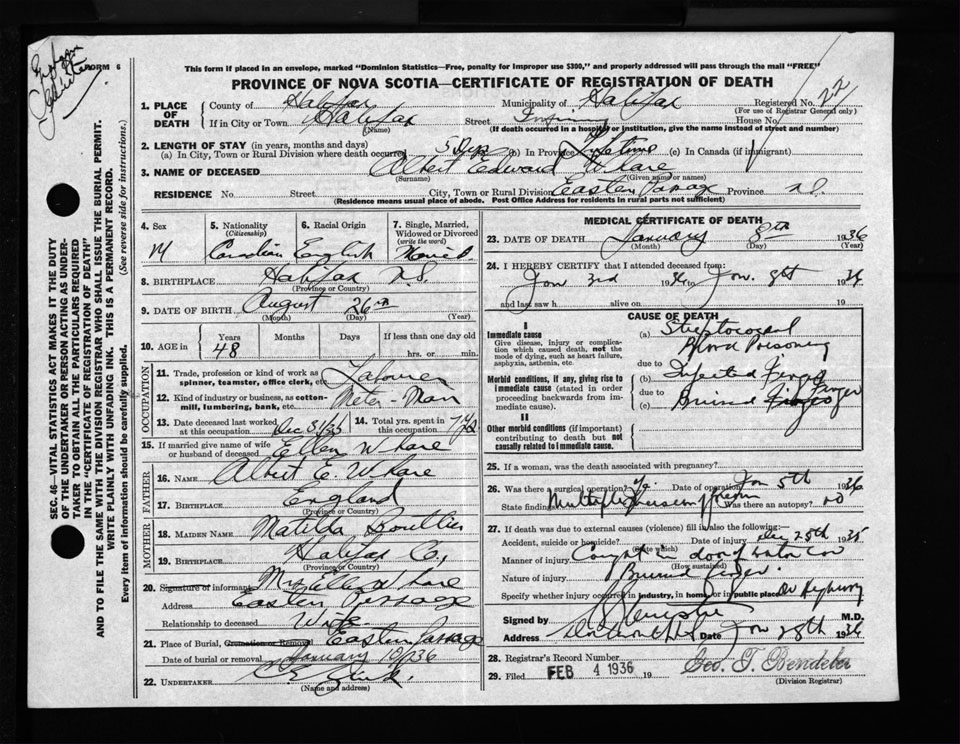 FORM 6
This form if placed in an envelope, marked "Dominion Statistics—Free, penalty for improper use $300," and properly addressed will pass through the mail "FREE"
PROVINCE OF NOVA SCOTIA—CERTIFICATE OF REGISTRATION OF DEATH
1. PLACE OF DEATH County of Halifax Municipality of Halifax Registered No. 22
(For use of Registrar General only)
If in City or Town Halifax Street House No.
(Name) (If death occurred in a hospital or institution, give the name instead of street and number)
2. LENGTH OF STAY (in years, months and days)
(a) In City, Town or Rural Division where death occurred 5 Days (b) In Province Lifetime (c) In Canada (if immigrant)
3. NAME OF DECEASED Albert Edward Whare
(Surname) (Given name or names)
RESIDENCE No. Street City, Town or Rural Division Eastern Passage Province N.S.
(Residence means usual place of abode. Post Office Address for residents in rural parts not sufficient)
SEC. 46—VITAL STATISTICS ACT MAKES IT THE DUTY
OF THE UNDERTAKER OR PERSON ACTING AS UNDER-
TAKER TO OBTAIN ALL THE PARTICULARS REQUIRED
IN THE "CERTIFICATE OF REGISTRATION OF DEATH"
AND TO FILE THE SAME WITH THE DIVISION REGISTRAR WHO SHALL ISSUE THE BURIAL PERMIT.
WRITE PLAINLY WITH UNFADING INK. THIS IS A PERMANENT RECORD.
Every item of information should be carefully supplied. (See reverse side for instructions.)
4. Sex 5. Nationality (Citizenship) 6. Racial Origin 7. Single, Married, Widowed or Divorced (write the word)
M Canadian English Married
8. BIRTHPLACE Halifax N.S.
(Province or Country)
9. DATE OF BIRTH August 26th
(Month) (Day) (Year)
10. AGE in Years Months Days If less than one day old
48 hrs. or min.
OCCUPATION
11. Trade, profession or kind of work as spinner, teamster, office clerk, etc. Labourer
12. Kind of industry or business, as cotton-mill, lumbering, bank, etc. Meter-Man
13. Date deceased last worked at this occupation Dec 31/35 14. Total yrs. spent in this occupation
15. If married give name of wife or husband of deceased Ellen Whare
FATHER
16. NAME Albert E. Whare
17. BIRTHPLACE England
(Province or Country)
MOTHER
18. MAIDEN NAME Matilda Boutlier
19. BIRTHPLACE Halifax Co.,
(Province or Country)
20. Signature of informant Mrs Ellen Whare
Address Eastern Passage
Relationship to deceased Wife
21. Place of Burial, Cremation or Removal Eastern Passage
Date of burial or removal January 10/36
22. UNDERTAKER
(Name and address)
MEDICAL CERTIFICATE OF DEATH
23. DATE OF DEATH January 8th 1936
(Month) (Day) (Year)
24. I HEREBY CERTIFY that I attended deceased from:
Jan 3rd 1936 to Jan. 8th 1936
and last saw h alive on 19
CAUSE OF DEATH
I
Immediate cause
Give disease, injury or complication which caused death, not the mode of dying, such as heart failure, asphyxia, asthenia, etc.
(a) Streptococcal
Blood Poisoning
due to
Morbid conditions, if any, giving rise to immediate cause (stated in order proceeding backwards from immediate cause).
(b) Infected Finger
due to
(c) Bruised Finger
II
Other morbid conditions (if important) contributing to death but not causally related to immediate cause.
25. If a woman, was the death associated with pregnancy?
26. Was there a surgical operation? Date of operation Jan 5th 1936
State findings Multiple Was there an autopsy? no
27. If death was due to external causes (violence) fill in also the following:—
Accident, suicide or homicide? Date of injury Dec 28th 1935
(State which)
Manner of injury Caught in door of
(How sustained)
Nature of injury Bruised finger.
Specify whether injury occurred in industry, in home or in public place
Signed by M.D.
Address Date Jan 28th 1936
28. Registrar's Record Number
29. Filed FEB 4 1936 19 Geo. T. Bendeler
(Division Registrar)